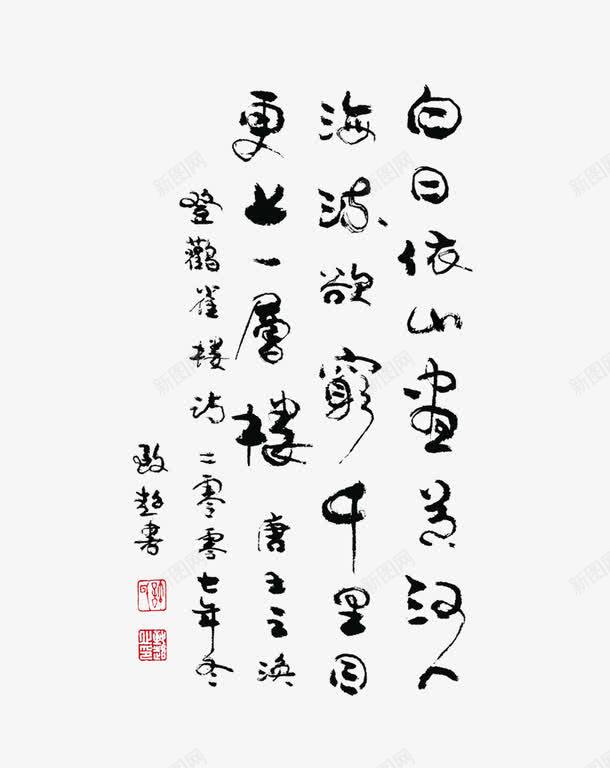 白日依山盡黄河入
海流欲窮千里目
更上一層樓 唐王之渙
登鸛雀樓詩 二零零七年冬
書
新图网